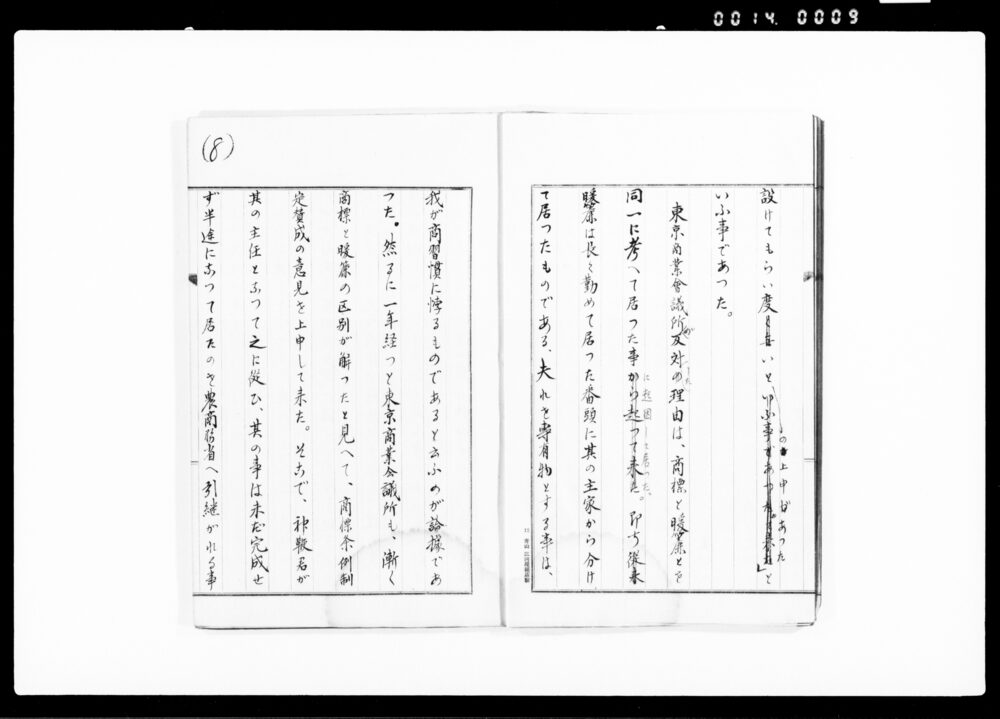 0014 0009
(8)
設けてもらい度
の上申があつた」と
いふ事であつた。
東京商業會議所が反対した理由は、商標と暖簾とを
同一に考へて居つた事に起因して居つた、即ち従来
暖簾は長く勤めて居つた番頭に其の主家から分け
て居つたものである、夫れを専有物とする事は、
我が商習慣に悖るものであると云ふのが論據であ
つた。然るに一年経つと東京商業会議所も、漸く
商標と暖簾の区別が解つたと見へて、商標条例制
定賛成の意見を上申して来た。そこで、神鞭君が
其の主任となつて之に從ひ、其の事は未だ完成せ
ず半途になつて居たのを農商務省へ引継がれる事